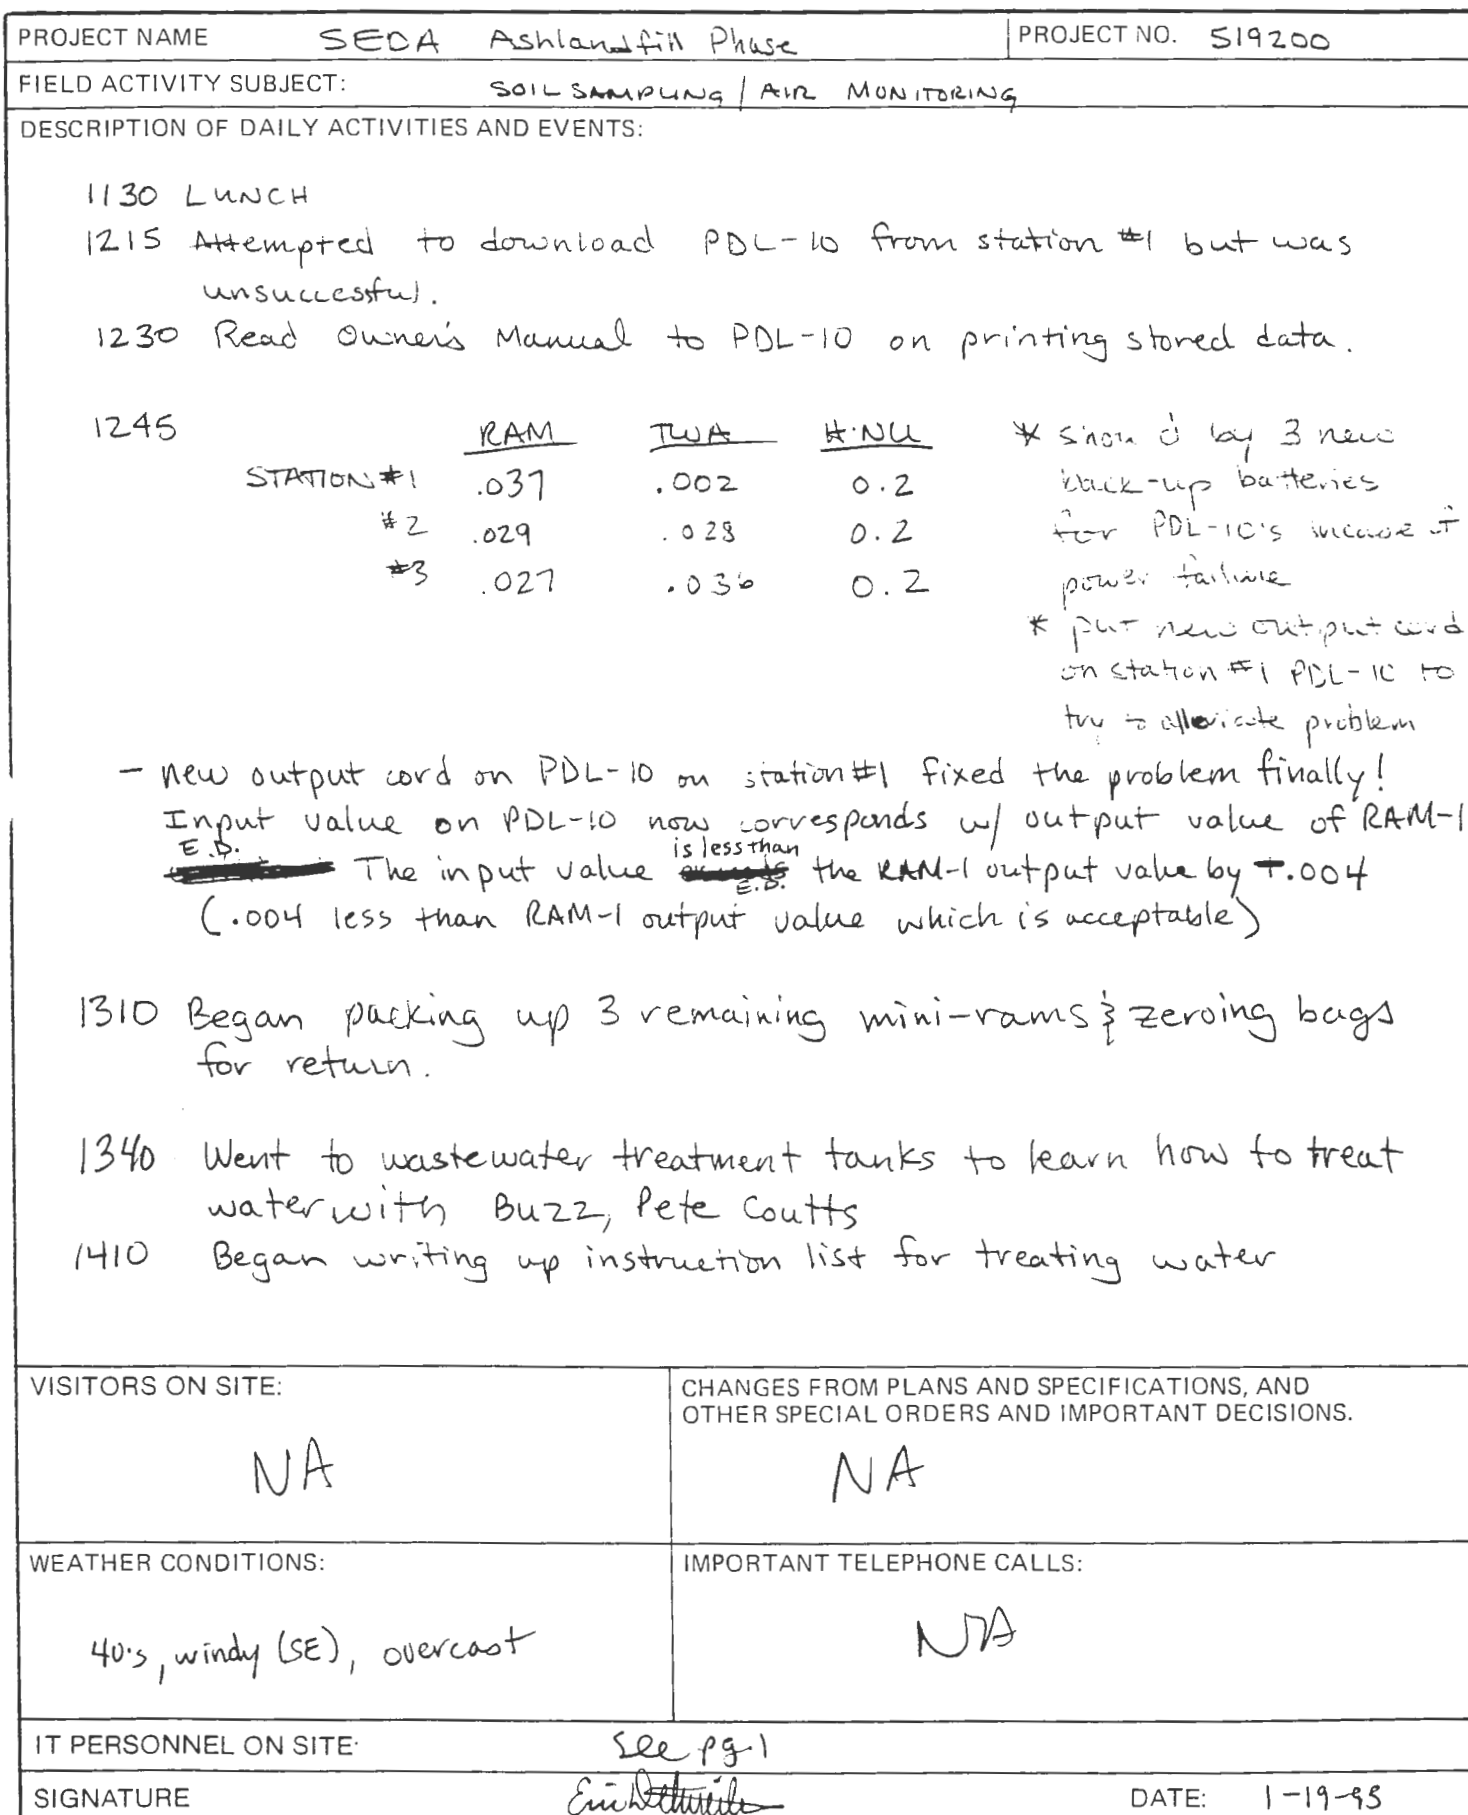 PROJECT NAME SEDA Ashlandfill Phase PROJECT NO. 519200
FIELD ACTIVITY SUBJECT: SOIL SAMPLING / AIR MONITORING
DESCRIPTION OF DAILY ACTIVITIES AND EVENTS:
1130 LUNCH
1215 Attempted to download PDL-10 from station #1 but was
unsuccessful.
1230 Read Owner's Manual to PDL-10 on printing stored data.
1245 RAM TWA H·NU * by 3 new
STATION #1 .037 .002 0.2 back-up batteries
#2 .029 .028 0.2 for PDL-10's incase of
#3 .027 .036 0.2 power failure
* put new output cord
on station #1 PDL-10 to
try to alleviate problem
- new output cord on PDL-10 on station #1 fixed the problem finally!
Input value on PDL-10 now corresponds w/ output value of RAM-1
E.D. The input value is less than E.D. the RAM-1 output value by .004
(.004 less than RAM-1 output value which is acceptable)
1310 Began packing up 3 remaining mini-rams & zeroing bags
for return.
1340 Went to wastewater treatment tanks to learn how to treat
water with Buzz, Pete Coutts
1410 Began writing up instruction list for treating water
VISITORS ON SITE:
NA
CHANGES FROM PLANS AND SPECIFICATIONS, AND
OTHER SPECIAL ORDERS AND IMPORTANT DECISIONS.
NA
WEATHER CONDITIONS:
40's, windy (SE), overcast
IMPORTANT TELEPHONE CALLS:
NA
IT PERSONNEL ON SITE: See pg. 1
SIGNATURE DATE: 1-19-95